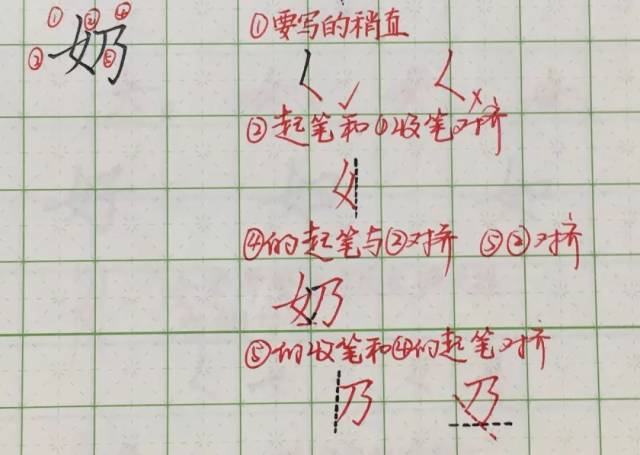 ① ② ④
奶
③ ⑤
①要写的稍直
②起笔和①收笔对挤
女
④的起笔与②对挤 ⑤②对挤
奶
⑤的收笔和④的起笔对挤
乃 乃